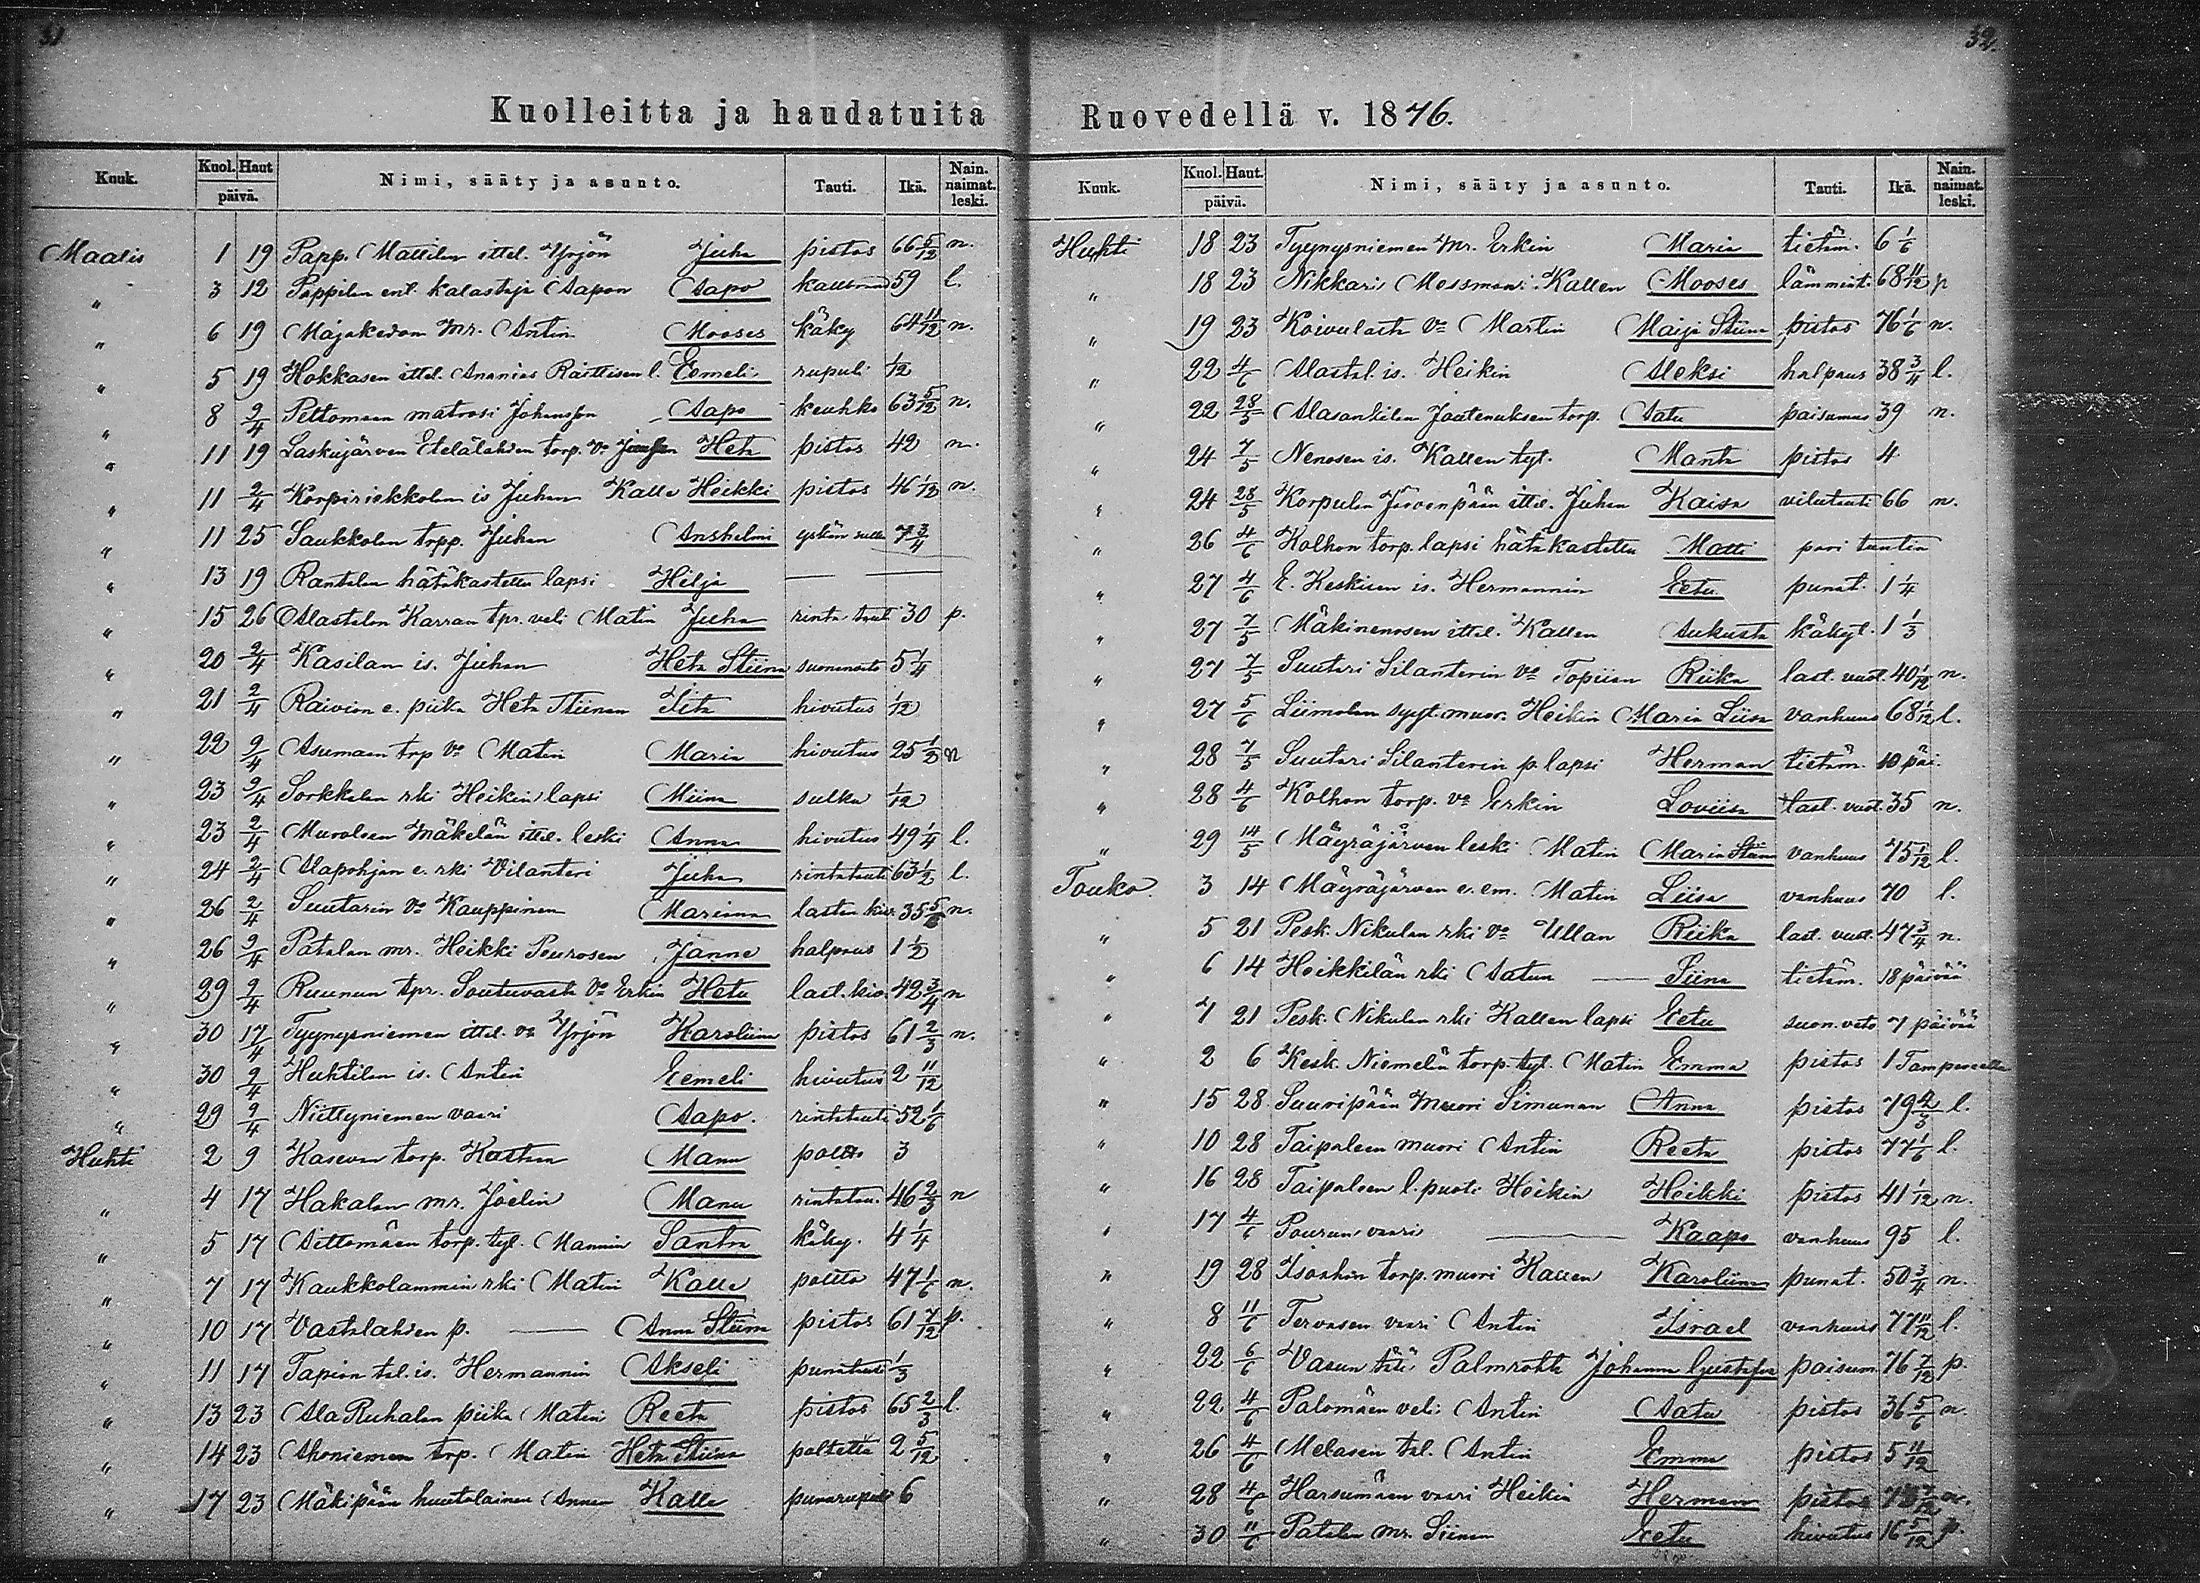 31
Kuolleitta ja haudatuita
Kuuk. Kuol. Haut päivä. Nimi, sääty ja asunto. Tauti. Ikä. Nain. naimat. leski.
Maalis 1 19 Papp. Mattilan ittel. Yrjön Juha pistos 66 5/12 n.
" 3 12 Pappilan ent. kalastaja Aapon Aapo 59 l.
" 6 19 Majakedon Mr. Antin Mooses käky 64 11/12 n.
" 5 19 Hokkasen ittel. Ananias Raittisen l. Eemeli rupuli 1/12
" 8 9/4 Peltomaan matrosi Johansson Aapo keuhko 63 5/12 n.
" 11 19 Laskujärven Etelälahden torp. vo Heta pistos 42 n.
" 11 2/4 Korpiriekkolan is Juhan Kalle Heikki pistos 46 1/12 n.
" 11 25 Saukkolan trpp. Juhan Anshelmi 7 3/4
" 13 19 Rantalan hätäkastettu lapsi Hilja — —
" 15 26 Alastalon Karran tpr. veli Matin Juha rinta taut 30 p.
" 20 2/4 Kasilan is. Juhan Heta Stiina suonenveto 5 1/4
" 21 2/4 Raivion e. piika Heta Stiinan Iita hivutus 1/12
" 22 9/4 Asumaan trp vo Matin Maria hivutus 25 1/2 n
" 23 9/4 Sorkkalan rki Heikin lapsi Miina sulku 1/12
" 23 2/4 Muroleen Mäkelän ittel. leski Anna hivutus 49 1/4 l.
" 24 2/4 Alapohjan e. rki Vilanteri Juha rintatauti 63 1/2 l.
" 26 2/4 Suutarin vo Kauppinen Mariana lasten kiv. 35 5/6 n.
" 26 9/4 Patalan mr. Heikki Peurosen Janne halpaus 1 1/2
" 29 9/4 Ruunun tpr. vo Erkin Heta last. kiv. 42 3/4 n
" 30 17/4 Tyynysniemen ittel. vo Yrjön Karoliina pistos 61 2/3 n.
" 30 9/4 Huhtilan is. Antin Eemeli hivutus 2 11/12
" 29 9/4 Niittyniemen vaari Aapo. rintatauti 52 1/6
Huhti 2 9 Kasevan torp. Kustaan Manu poltto 3
" 4 17 Hakalan mr. Joelin Manu rintatau. 46 2/3 n
" 5 17 Aittomäen torp. tyt. Mannin Santra käky. 4 1/4
" 7 17 Kaukkolammin rki Matin Kalle poltto 47 1/6 n.
" 10 17 Vastalahden p. — Anna Stiina pistos 61 7/12 p.
" 11 17 Tapion tal. is. Hermannin Akseli punatauti 1/3
" 13 23 Ala Ruhalan piika Matin Reeta pistos 65 2/3 l.
" 14 23 Ahoniemen trp. Matin Heta Stiina poltetta 2 5/12
" 17 23 Mäkipään huutolainen Annan Kalle punarupuli 6
32.
Ruovedellä v. 1876.
Kuuk. Kuol. Haut. päivä. Nimi, sääty ja asunto. Tauti. Ikä. Nain. naimat. leski.
Huhti 18 23 Tyynysniemen mr. Erkin Maria tietäm. 6 1/6
" 18 23 Nikkari Messman Kallen Mooses lämmint. 68 11/12 p
" 19 23 Koivulastn vo Martin Maija Stiina pistos 76 1/6 n.
" 22 4/6 Alastal. is. Heikin Aleksi halpaus 38 3/4 l.
" 22 28/5 Alasankilan Joutenuksen torp. Aatu paisumus 39 n.
" 24 7/5 Nenosen is. Kallen tyt. Manta pistos 4
" 24 28/5 Korpulan Järvenpään ittel. Juhan Kaisa vilutauti 66 n.
" 26 4/6 Kolhon torp. lapsi hätäkastettu Matti pari tuntia
" 27 4/6 E. Keskisen is. Hermannin Eetu punat. 1 1/4
" 27 7/5 Mäkinenosen ittel. Kallen Aukusta käkyt. 1 1/3
" 27 7/5 Suutari Silanterin vo Topiian Riika last. vuot. 40 1/12 n.
" 27 5/6 Liimolan syyt. muor. Heikin Maria Liisa vanhuus 68 1/12 l.
" 28 7/5 Suutari Silanterin p. lapsi Herman tietäm. 10 päi.
" 28 4/6 Kolhon torp. vo Erkin Loviisa last. vuot. 35 n.
" 29 14/5 Mäyräjärven leski Matin Maria Stiina vanhuus 75 1/12 l.
Touko 3 14 Mäyräjärven e. em. Matin Liisa vanhuus 70 l.
" 5 21 Pesk. Nikulan rki vo Ullan Riika last. vuot. 47 3/4 n.
" 6 14 Heikkilän rki Aatun — Siina tietäm. 18 päivää
" 7 21 Pesk. Nikulan rki Kallen lapsi Eetu suon. veto 7 päivää
" 2 6 Kesk. Niemelän torp. tyt. Matin Emma pistos 1 Tampereella
" 15 28 Suuripään muori Simunan Anna pistos 79 2/3 l.
" 10 28 Taipaleen muori Antin Reeta pistos 77 1/6 l.
" 16 28 Taipaleen l. puoti Heikin Heikki pistos 41 1/12 n.
" 17 4/6 Pourun vaari — Kaapo vanhuus 95 l.
" 19 28 Isoahon torp. muori Kallen Karoliina punat. 50 3/4 n.
" 8 11/6 Tervasen vaari Antin Israel vanhuus 77 11/12 l.
" 22 6/6 Vasun täti Palmroth Johanna Gustafva paisum. 76 7/12 p.
" 22 4/6 Palomäen veli Antin Aatu pistos 36 5/6 n.
" 26 4/6 Melasen tal. Antin Emma pistos 5 11/12
" 28 4/6 Harsumäen vaari Heikin Herman pistos
" 30 11/6 Patalan mr. Siinan Eetu hivutus 16 5/12 p.